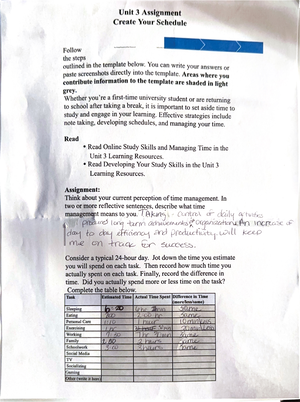 Unit 3 Assignment
Create Your Schedule
Follow
the steps
outlined in the template below. You can write your answers or
paste screenshots directly into the template. Areas where you
contribute information to the template are shaded in light
grey.
Whether you're a first-time university student or are returning
to school after taking a break, it is important to set aside time to
study and engage in your learning. Effective strategies include
note taking, developing schedules, and managing your time.
Read
• Read Online Study Skills and Managing Time in the
Unit 3 Learning Resources.
• Read Developing Your Study Skills in the Unit 3
Learning Resources.
Assignment:
Think about your current perception of time management. In
two or more reflective sentences, describe what time
management means to you. Taking control of daily activities
long-term achievements. An increase of
day to day efficiency and productivity will keep
me on track for success.
Consider a typical 24-hour day. Jot down the time you estimate
you will spend on each task. Then record how much time you
actually spent on each task. Finally, record the difference in
time. Did you actually spend more or less time on the task?
Complete the table below.
Task Estimated Time Actual Time Spent Difference in Time (more/less/same)
Sleeping same
Eating same
Personal Care 1 hour
Exercising
Working same
Family 2 hours same
Schoolwork 3 hours same
Social Media
TV
Socializing
Gaming
Other (write it here)